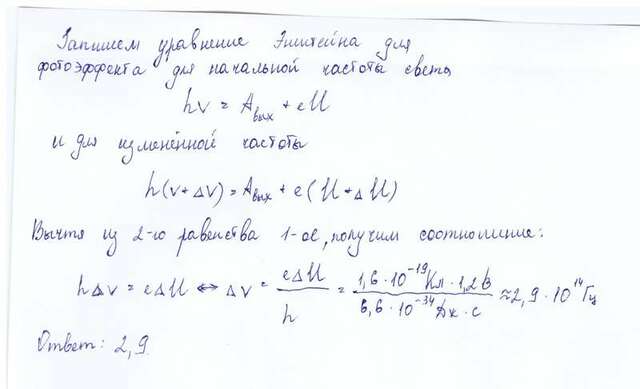 Запишем уравнение Эйнштейна для
фотоэффекта для начальной частоты света
hν = Aвых + eU
и для изменённой частоты
h(ν+Δν) = Aвых + e(U+ΔU)
Вычтя из 2-го равенства 1-ое, получим соотношение:
hΔν = eΔU ⇔ Δν = eΔU/h = 1,6·10⁻¹⁹Кл·1,2В/6,6·10⁻³⁴Дж·с ≈ 2,9·10¹⁴Гц
Ответ: 2,9.